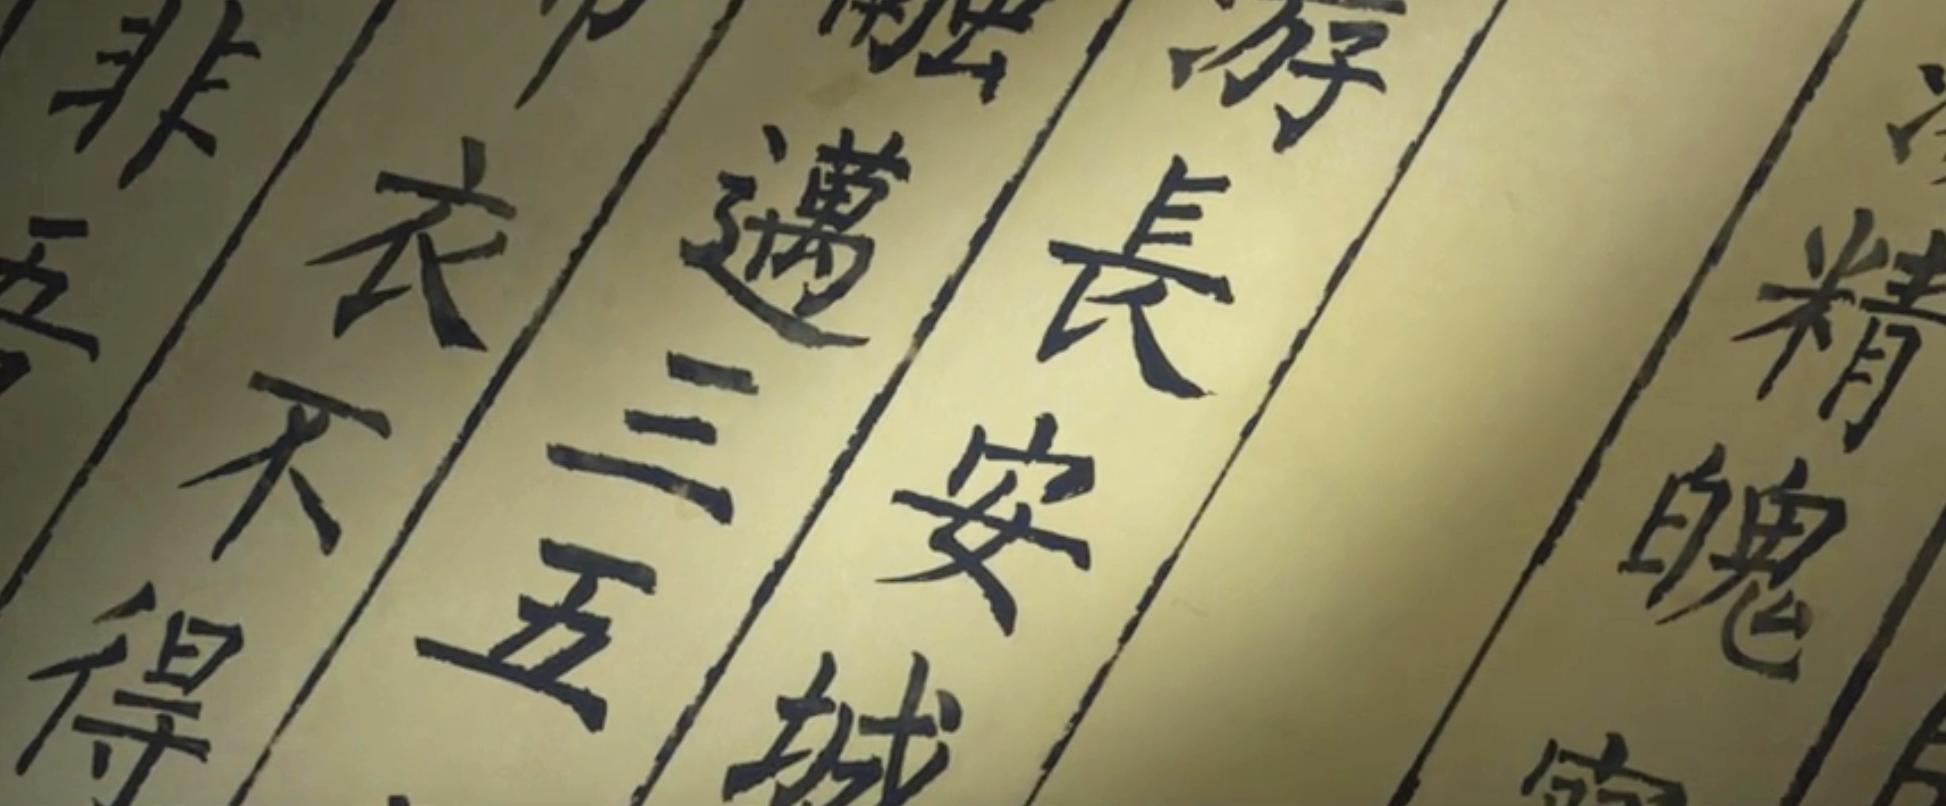 精魄
游長安城
邁三五
衣不得
非吾